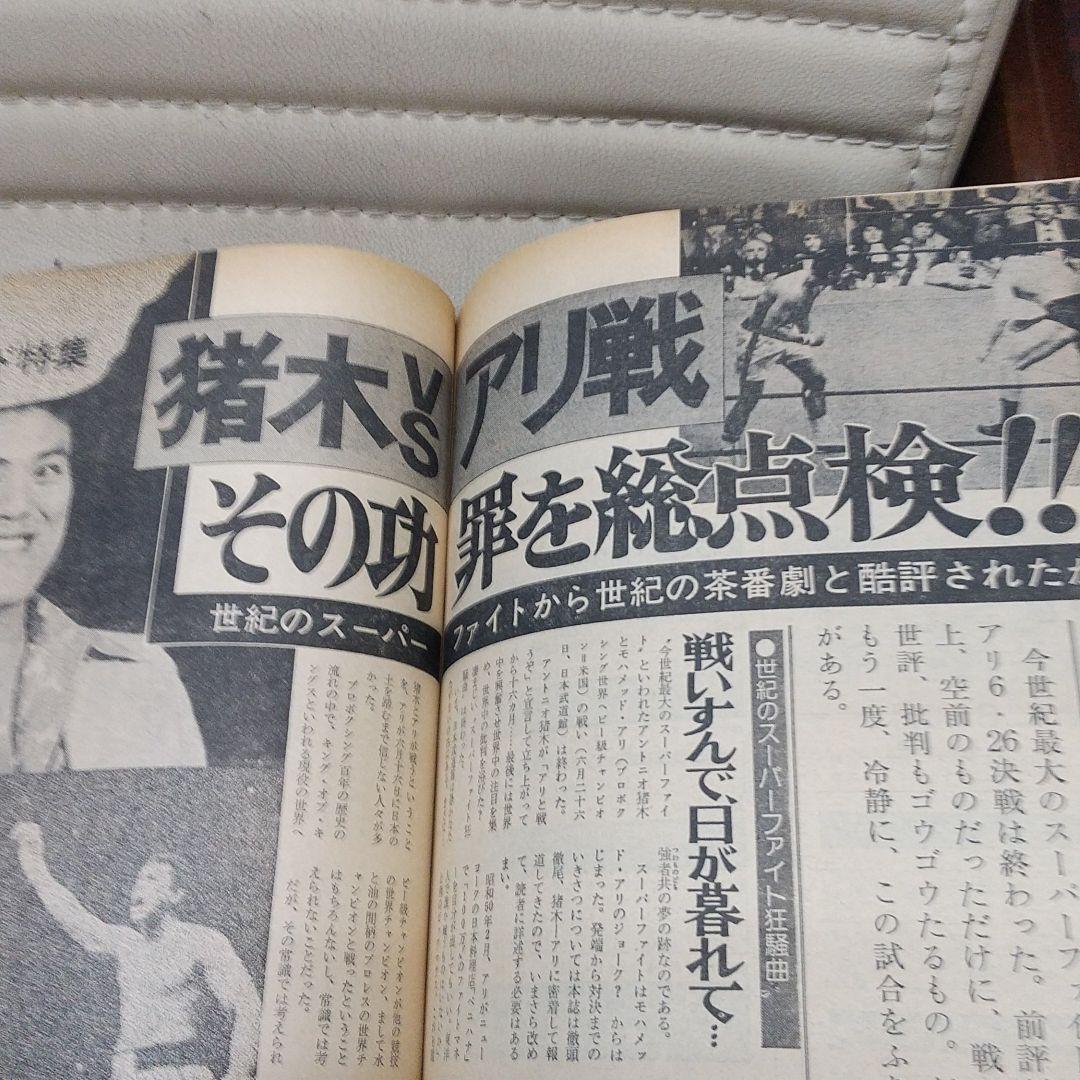 特集
猪木VSアリ戦
その功罪を総点検!!
世紀のスーパーファイトから世紀の茶番劇と酷評されたが
今世紀最大のスーパーフ
アリ6・26決戦は終わった。前評
上、空前のものだっただけに、戦
世評、批判もゴウゴウたるもの。
もう一度、冷静に、この試合をふ
がある。
●世紀のスーパーファイト狂騒曲
戦いすんで、日が暮れて…
〝今世紀最大のスーパーファイ
ト〟といわれたアントニオ猪木
とモハメッド・アリ(プロボク
シング世界ヘビー級チャンピオ
ン=米国)の戦い(六月二十六
日、日本武道館)は終わった。
アントニオ猪木が「アリと戦
うぞ」と宣言して立ち上がって
から十六カ月……最後には世界
中を興奮させ世界中の注目を集
め、世界中の批判を浴びた?
凄まじい〝スーパーファイト狂
騒曲〟は終わった。
強者共の夢の跡なのである。
つわものども
スーパーファイトはモハメッ
ド・アリのジョーク? からは
じまった。発端から対決までの
いきさつについては本誌は徹頭
徹尾、猪木―アリに密着して報
道してきたので、いまさら改め
て、読者に詳述する必要はある
まい。
昭和50年2月、アリがニュー
ヨークの日本料理店〝ベニハナ〟
で「100万ドルのファイトマネ
猪木とアリが戦うということ
を、アリが六月十六日に日本の
土を踏むまで信じない人々が多
かった。
プロボクシング百年の歴史の
流れの中で、キング・オブ・キ
ングスといわれる現役の世界ヘ
ビー級チャンピオンが他の競技
の世界チャンピオン、まして水
と油の間柄のプロレスの世界チ
ャンピオンと戦ったということ
はもちろんないし、常識では考
えられないことだった。
だが、その常識では考えられ